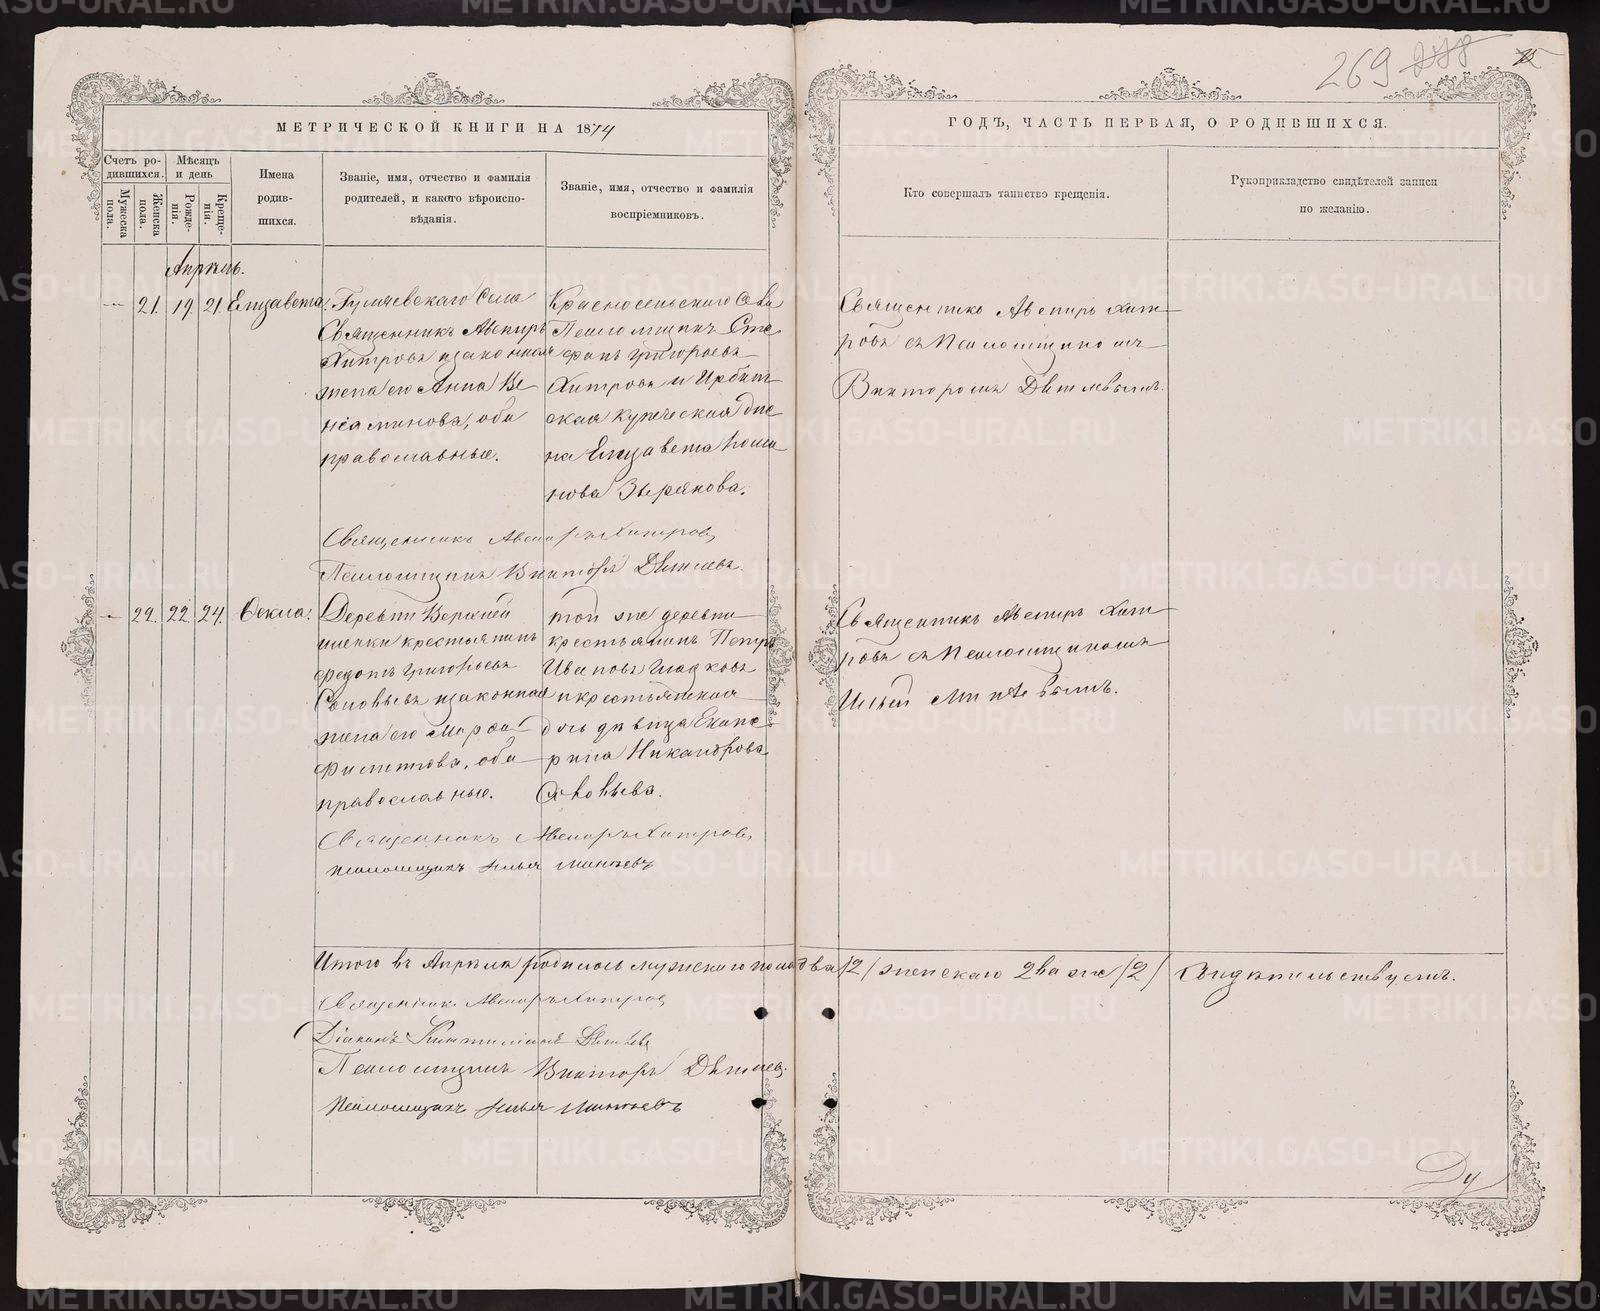 269 278 75
МЕТРИЧЕСКОЙ КНИГИ НА 1874
ГОДЪ, ЧАСТЬ ПЕРВАЯ, О РОДИВШИХСЯ.
Счетъ ро-
дившихся.
Мужеска
пола.
Женска
пола.
Мѣсяцъ
и день
Рожде-
нія.
Креще-
нія.
Имена
родив-
шихся.
Званіе, имя, отчество и фамилія
родителей, и какого вѣроиспо-
вѣданія.
Званіе, имя, отчество и фамилія
воспріемниковъ.
Кто совершалъ таинство крещенія.
Рукоприкладство свидѣтелей записи
по желанію.
Апрѣль.
— 21. 19. 21. Елизавета.
Священникъ Авениръ
Хитровъ изаконная
жена его Анна Ве
ніаминова, оба
православные.
Красносельскаго села
Псаломщикъ Сте
фанъ Григорьевъ
Хитровъ и Ирбит
ская купеческая
на Елизавета
нова Зырянова.
Священникъ Авениръ Хит
ровъ съ Псаломщикомъ
Викторомъ Дѣтлевымъ.
Священникъ Авениръ Хитровъ
Псаломщикъ Викторъ Дѣтлевъ.
— 22. 22. 24. Ѳекла.
Деревни Верхней
крестьянинъ
Федотъ Григорьевъ
Соловьевъ изаконная
жена его Марѳа
Филиппова, оба
православные.
той же деревни
крестьянинъ Петръ
Ивановъ Гладковъ
икрестьянская
дочь дѣвица Екате
рина Никандрова
Соловьева.
Священникъ Авениръ Хит
ровъ съ Псаломщикомъ
Ильей Минѣевымъ.
Священникъ Авениръ Хитровъ
псаломщикъ Илья Минѣевъ
Итого въ Апрѣлѣ родилось мужскаго пола два /2/ женскаго два же /2/ Свидѣтельствуемъ.
Священникъ Авениръ Хитровъ
Діаконъ
Псаломщикъ Викторъ Дѣтлевъ.
Псаломщикъ Илья Минѣевъ
Ду
METRIKI.GASO-URAL.RU